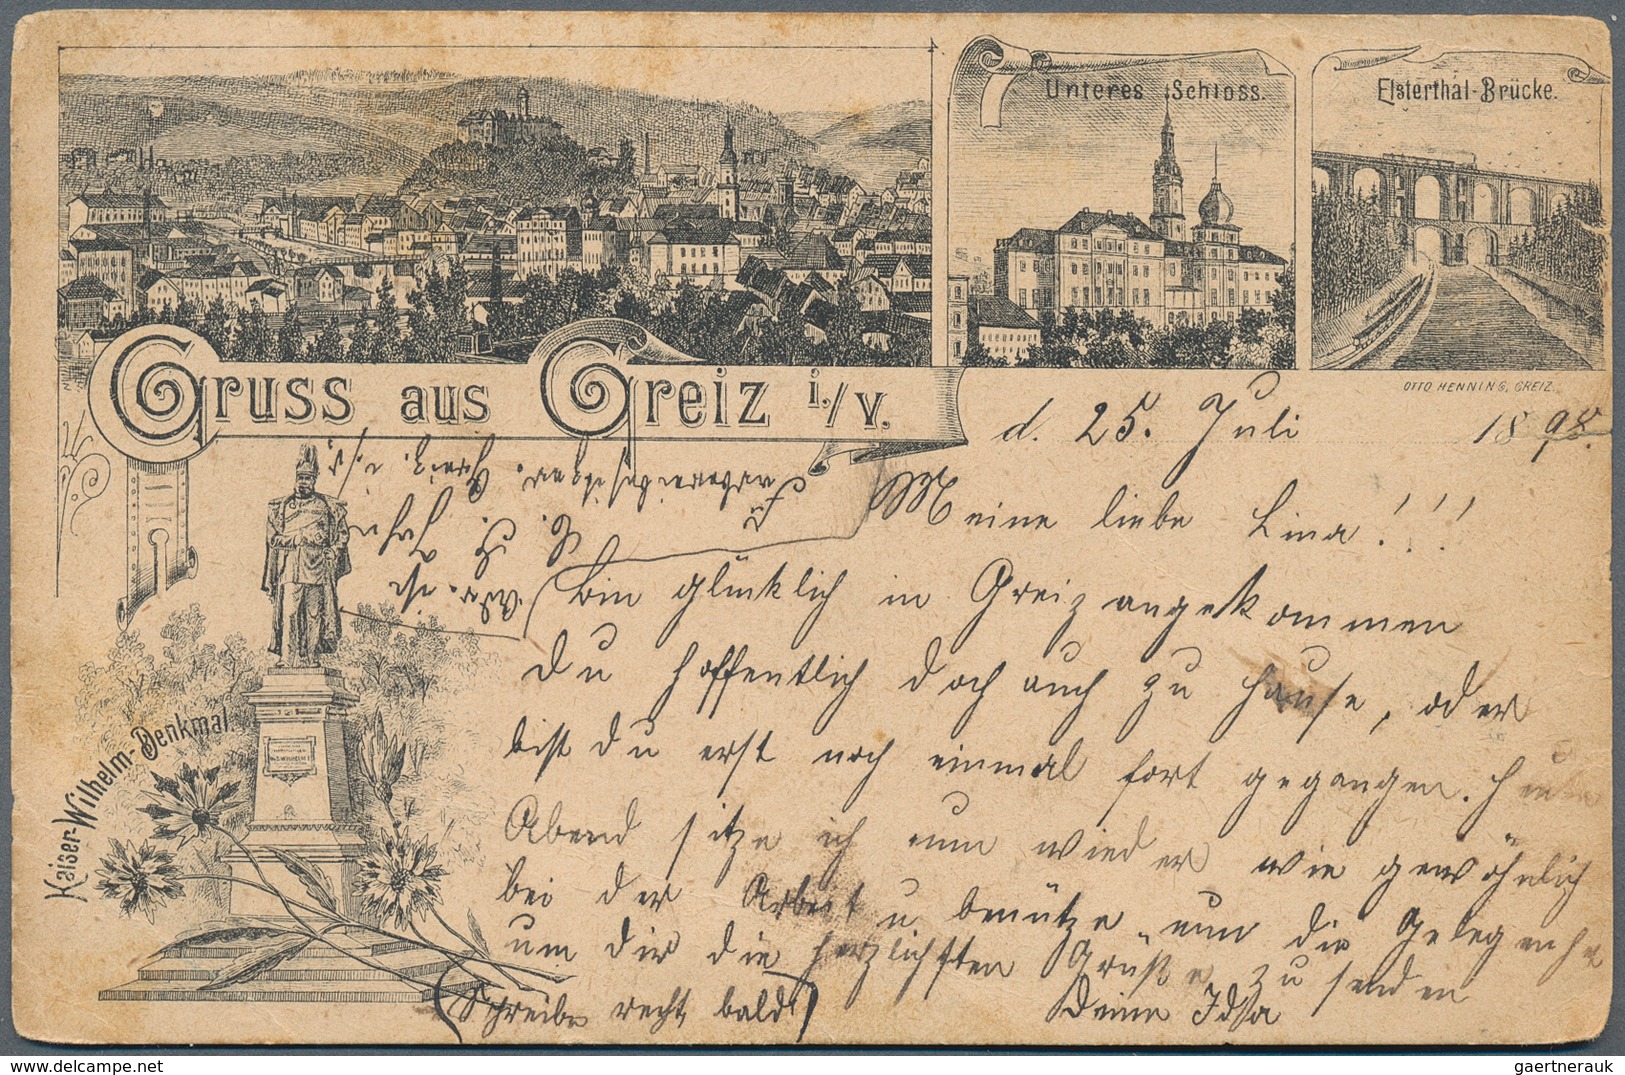 Unteres Schloss.
Elsterthal-Brücke.
OTTO HENNING, GREIZ.
Gruss aus Greiz i./V.
d. 25. Juli 1898.
Meine liebe Lina!!!
Bin glücklich in Greiz angekommen
Du hoffentlich doch auch zu Hause, oder
bist Du erst noch einmal fort gegangen. Heute
Abend sitze ich nun wieder wie gewöhnlich
bei der Arbeit u. benütze nun die Gelegenhe
um Dir die herzlichsten Grüße zu senden
(Schreibe recht bald!) Deine Ida
Adr. ist
Greiz i./V.
Kaiser-Wilhelm-Denkmal.
www.delcampe.net
gaertnerauk